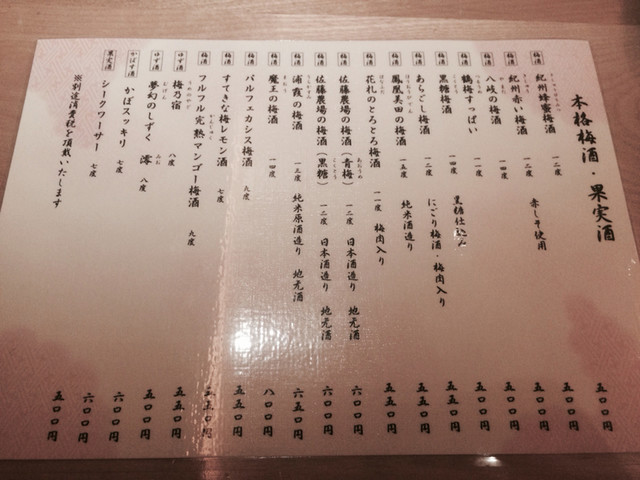 本格梅酒・果実酒
梅酒 紀州蜂蜜梅酒 一二度 五五〇円
梅酒 紀州赤い梅酒 一二度 赤しそ使用 五五〇円
梅酒 八岐の梅酒 一四度 五〇〇円
梅酒 鶴梅すっぱい 一一度 五〇〇円
梅酒 黒糖梅酒 一四度 黒糖仕込み 五五〇円
梅酒 あらごし梅酒 一二度 にごり梅酒・梅肉入り 五五〇円
梅酒 鳳凰美田の梅酒 一五度 純米酒造り 五五〇円
梅酒 花札のとろとろ梅酒 一一度 梅肉入り 五五〇円
梅酒 佐藤農場の梅酒（青梅） 一二度 日本酒造り 地元酒 六〇〇円
梅酒 佐藤農場の梅酒（黒糖） 一二度 日本酒造り 地元酒 六〇〇円
梅酒 浦霞の梅酒 一三度 純米原酒造り 地元酒 六五〇円
梅酒 魔王の梅酒 一四度 八〇〇円
梅酒 パルフェカシス梅酒 九度 五五〇円
梅酒 すてきな梅レモン酒 七度 五五〇円
梅酒 フルフル完熟マンゴー梅酒 九度 五五〇円
ゆず酒 梅乃宿 八度 五五〇円
ゆず酒 夢幻のしずく 澪 八度 五〇〇円
かぼす酒 かぼスッキリ 七度 六〇〇円
果実酒 シークワーサー 七度 六〇〇円
※別途消費税を頂戴いたします 五〇〇円